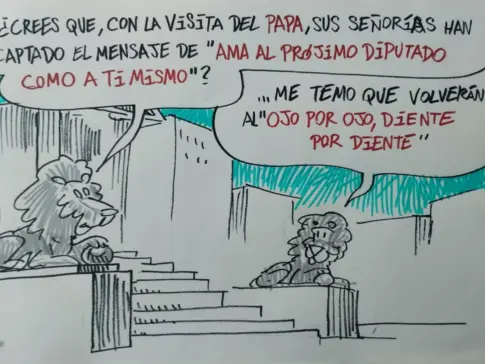 ¿CREES QUE, CON LA VISITA DEL PAPA, SUS SEÑORÍAS HAN
CAPTADO EL MENSAJE DE "AMA AL PRÓJIMO DIPUTADO
COMO A TI MISMO"?
...ME TEMO QUE VOLVERÁN
AL "OJO POR OJO, DIENTE
POR DIENTE"